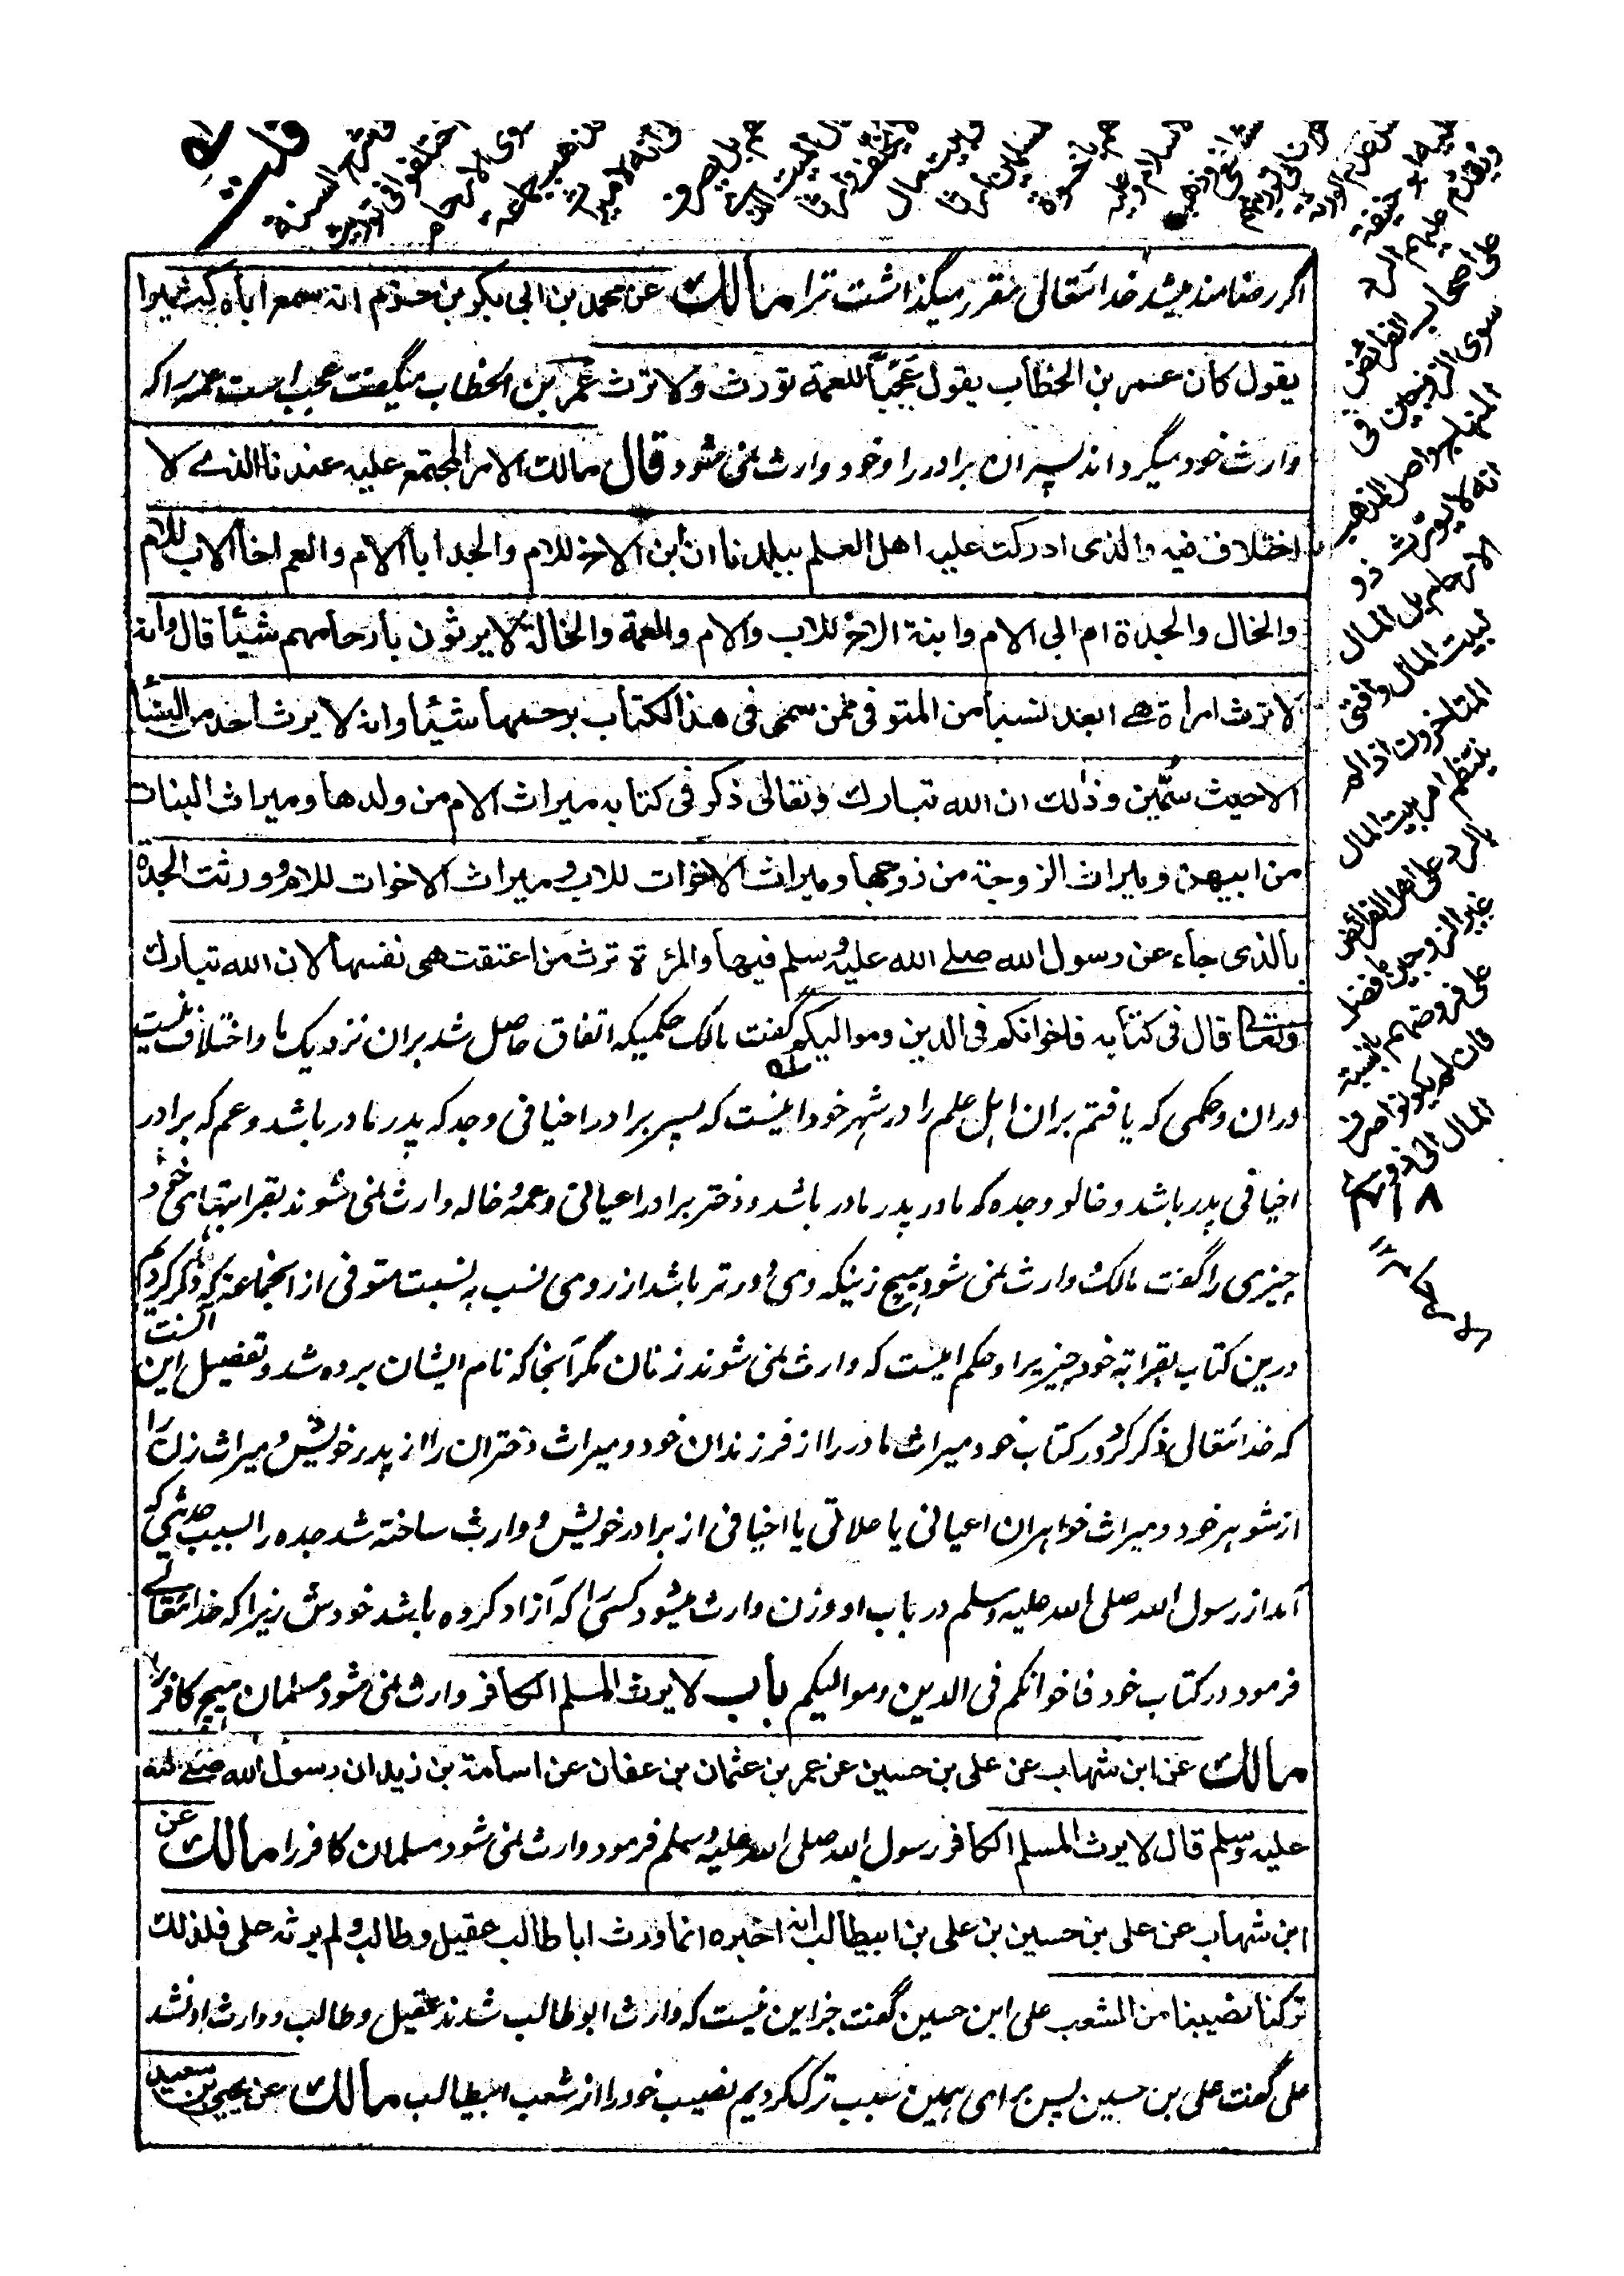 اگر رضامند میشد خدائتعالی مقرر میگذاشت ترا مالك عن محمد بن ابی بکر بن حزم انه سمع اباه کثیرا
یقول کان عمر بن الخطاب یقول عجباً للعمة تورث ولا ترث عمر بن الخطاب میگفت عجب است عمه را که
وارث خود میگرداند پسران برادر را و خود وارث نمی شود قال مالك الامر المجتمع علیه عندنا الذی لا
اختلاف فیه والذی ادرکت علیه اهل العلم ببلدنا ان ابن الاخ للام والجد ابا الام والعم اخا الاب للام
والخال والجدة ام ابی الام وابنة الاخ للاب والام والعمة والخالة لا یرثون بارحامهم شیئا قال وانه
لا ترث امرأة هی ابعد نسبا من المتوفی ممن سمی فی هذا الکتاب برحمها شیئا وانه لا یرث احد من النسا
الا حیث سمین وذلك ان الله تبارك وتعالی ذکر فی کتابه میراث الام من ولدها ومیراث البنات
من ابیهن ومیراث الزوجة من زوجها ومیراث الاخوات للاب ومیراث الاخوات للام وورثت الجدة
بالذی جاء عن رسول الله صلی الله علیه وسلم فیها والمرءة ترث من اعتقت هی نفسها لان الله تبارك
وتعالی قال فی کتابه فاخوانکم فی الدین وموالیکم گفت مالک حکمیکه اتفاق حاصل شد بران نزدیک ما و اختلاف نیست
دران و حکمی که یافتم بران اهل علم را در شهر خود اینست که پسر برادر اخیافی و جد که پدر مادر باشد و عم که برادر
اخیافی پدر باشد و خالو و جده که مادر پدر مادر باشد و دختر برادر اعیانی و عمه و خاله وارث نمی شوند بقرابتهای خود
چیزی را گفت مالک و وارث نمی شود هیچ زنیکه وی دورتر باشد از روی نسب به نسبت متوفی از انجماعه که ذکر کردیم
درین کتاب بقرابته خود چیزیرا و حکم اینست که وارث نمی شوند زنان مگر آنجا که نام ایشان برده شد و تفصیل این آنست
که خدائتعالی ذکر کرد در کتاب خود میراث مادر را از فرزندان خود و میراث دختران را از پدر خویش و میراث زن را
از شوهر خود و میراث خواهران اعیانی یا علاتی یا اخیافی از برادر خویش و وارث ساخته شد جده را بسبب حدیثی که
آمد از رسول الله صلی الله علیه وسلم در باب او و زن وارث میشود کسی را که آزاد کرده باشد خودش زیرا که خدائتعالی
فرمود در کتاب خود فاخوانکم فی الدین وموالیکم باب لا یرث المسلم الکافر وارث نمی شود مسلمان هیچ کافر را
مالك عن ابن شهاب عن علی بن حسین عن عمر بن عثمان بن عفان عن اسامة بن زید ان رسول الله صلی الله
علیه وسلم قال لا یرث المسلم الکافر رسول الله صلی الله علیه وسلم فرمود وارث نمی شود مسلمان کافر را مالك عن
ابن شهاب عن علی بن حسین بن علی بن ابیطالب انه اخبره انما ورث ابا طالب عقیل وطالب ولم یرثه علی فلذلك
ترکنا نصیبنا من الشعب علی ابن حسین گفت جز این نیست که وارث ابوطالب شدند عقیل و طالب و وارث او نشد
علی گفت علی بن حسین پس برای همین سبب ترک کردیم نصیب خود را از شعب ابیطالب مالك عن یحیی بن سعید
علیهم الرد
علی اصحاب الفرائض
سوی الزوجین فی
المنهاج واصل المذهب
انه لا یورث ذو
الارحام بل المال
لبیت المال وافتی
المتاخرون اذا لم
ینتظم امر بیت المال
بالرد علی اهل الفرائض
غیر الزوجین ما فضل
علی فروضهم بالنسبة
فان لم یکونوا صرف
المال الی ذوی